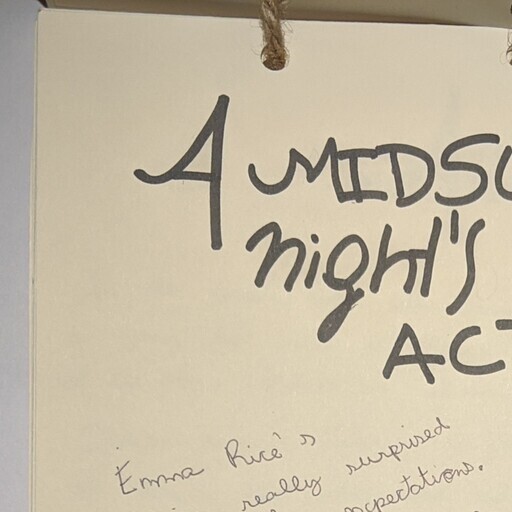 A MIDSU
night's
ACT
Emma Rice's
really surprised
expectations.